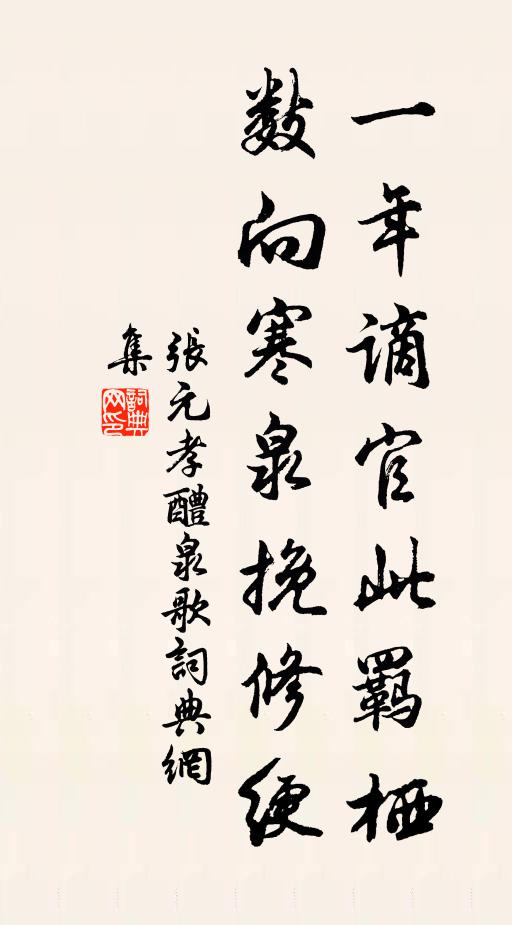 一年谪官此羁栖
数向寒泉挽修绠
張元孝醴泉歌詞典網
集
詞典网印